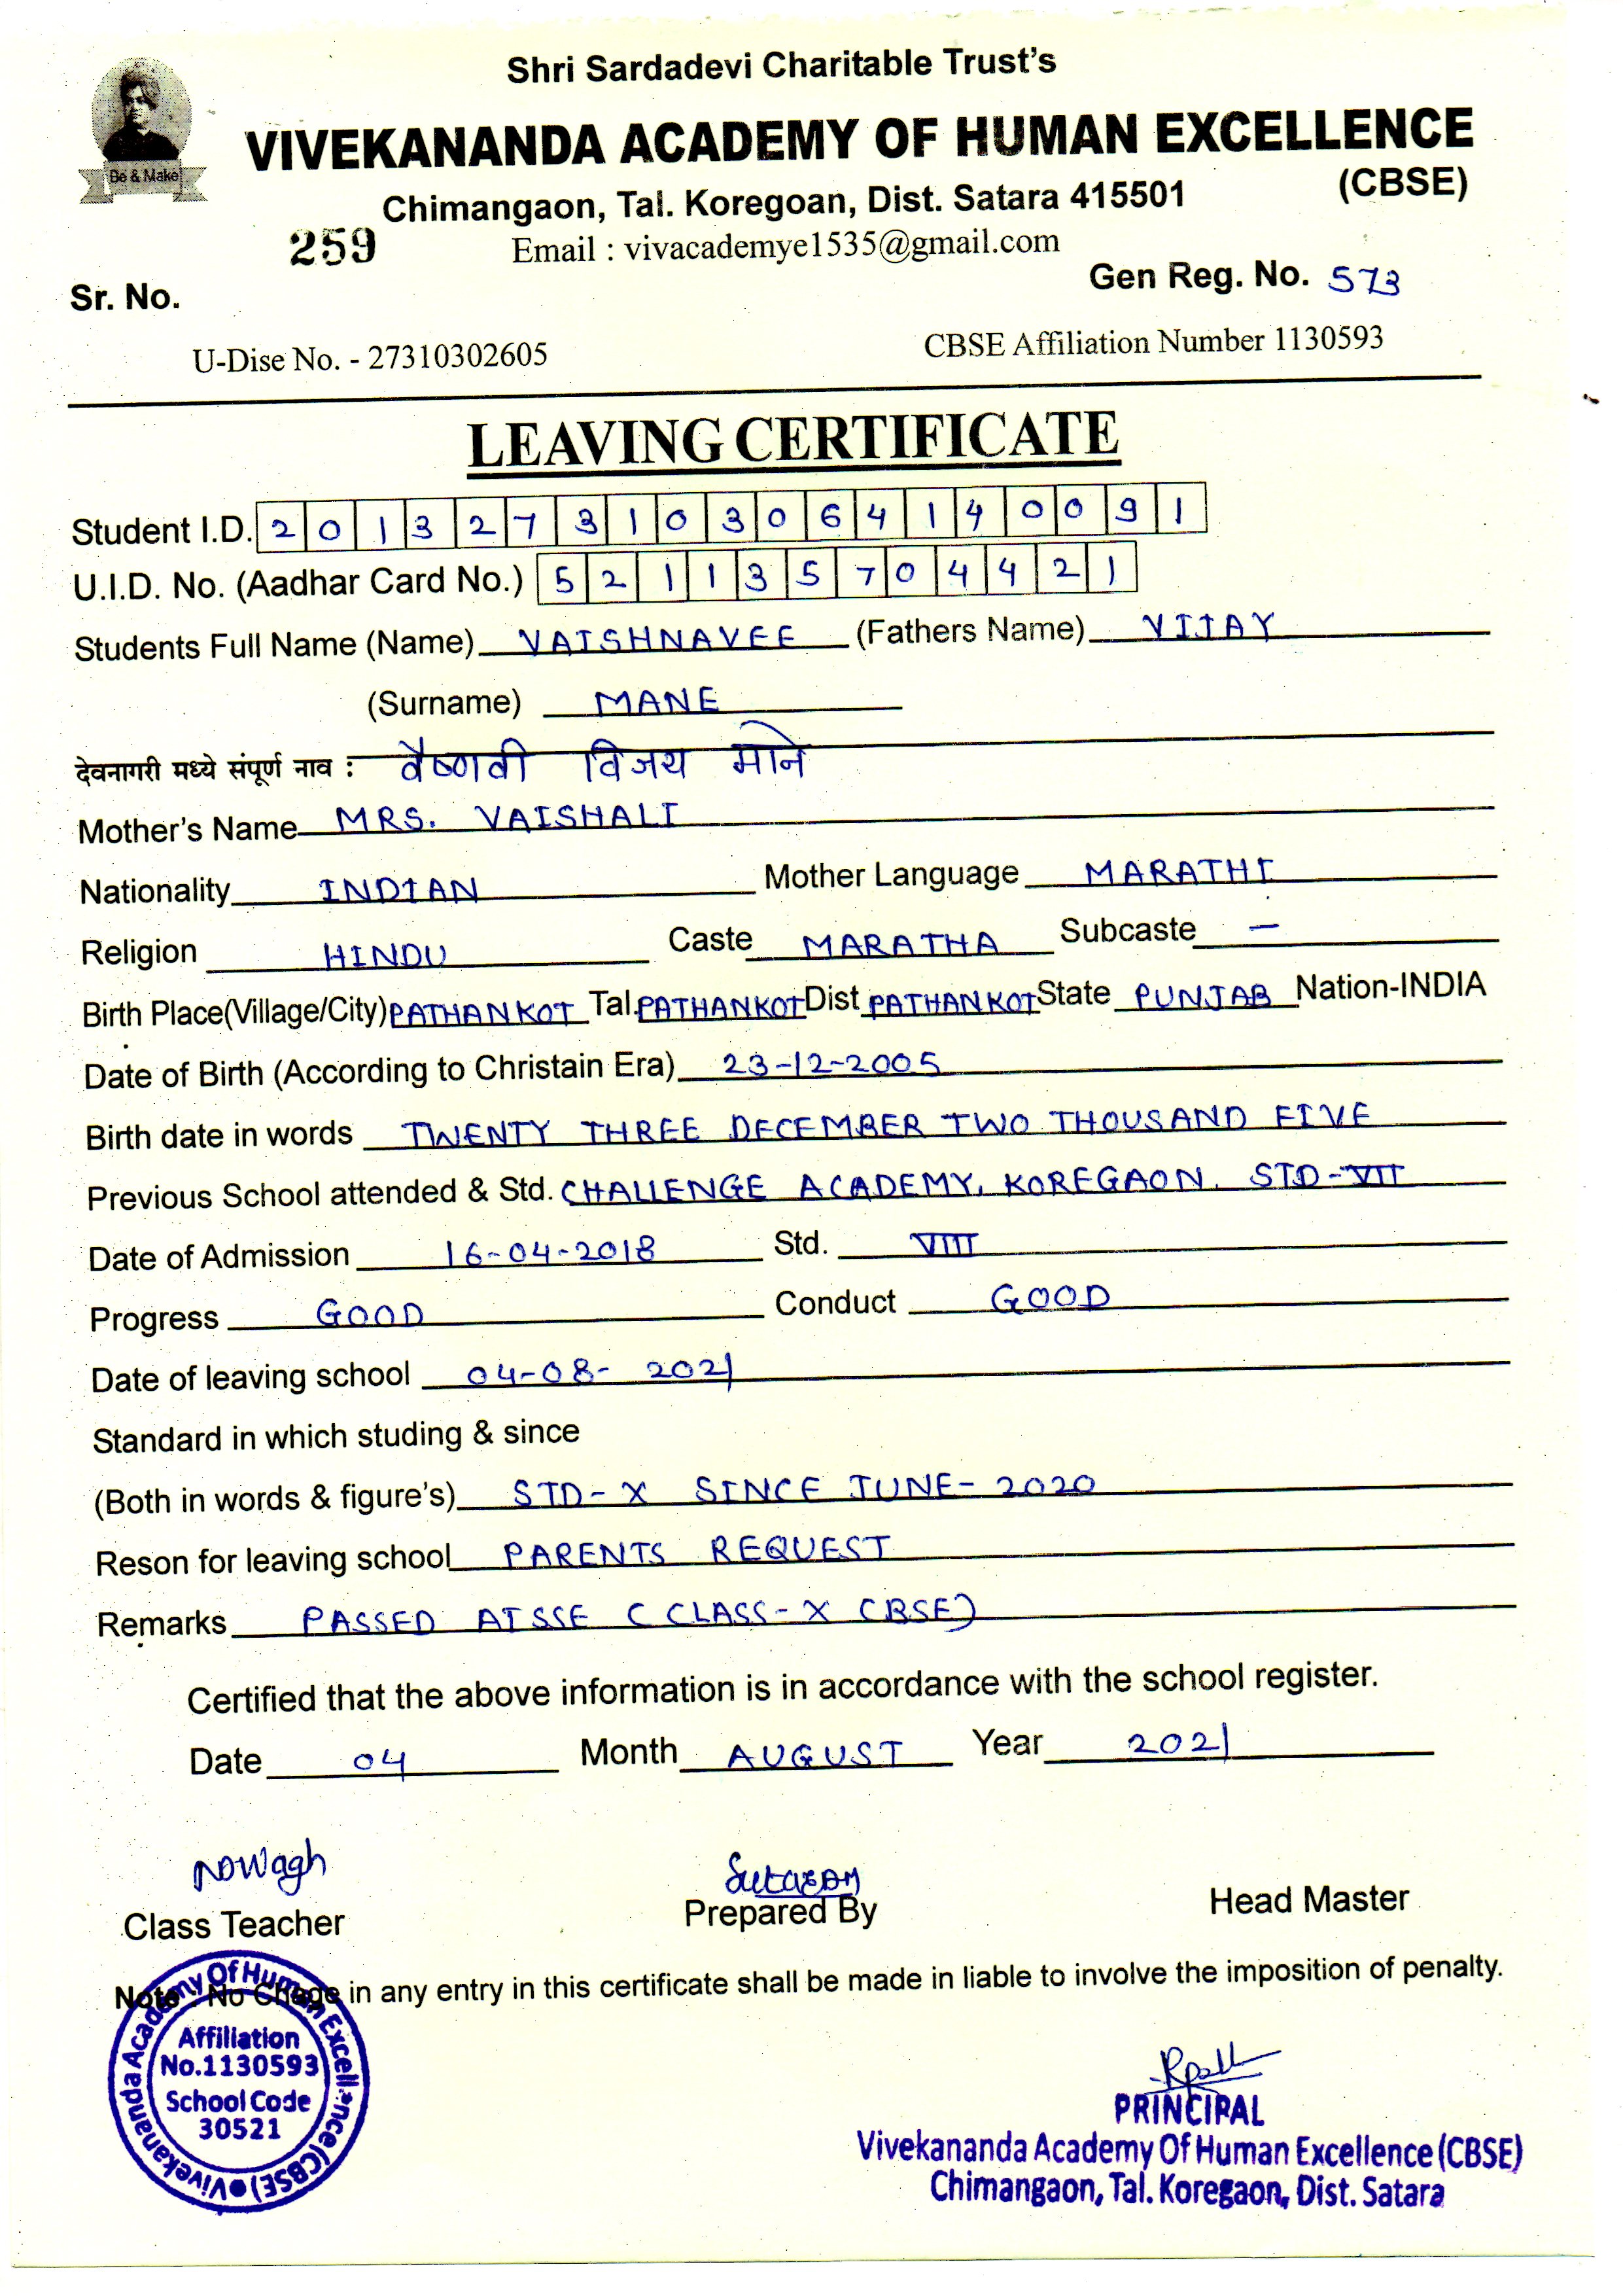 Shri Sardadevi Charitable Trust's
VIVEKANANDA ACADEMY OF HUMAN EXCELLENCE
(CBSE)
Be & Make
Chimangaon, Tal. Koregoan, Dist. Satara 415501
259
Email : vivacademye1535@gmail.com
Sr. No.
Gen Reg. No. 573
U-Dise No. - 27310302605
CBSE Affiliation Number 1130593
LEAVING CERTIFICATE
Student I.D. 2 0 1 3 2 7 3 1 0 3 0 6 4 1 4 0 0 9 1
U.I.D. No. (Aadhar Card No.) 5 2 1 1 3 5 7 0 4 4 2 1
Students Full Name (Name) VAISHNAVEE (Fathers Name) VIJAY
(Surname) MANE
देवनागरी मध्ये संपूर्ण नाव : वैष्णवी विजय माने
Mother's Name MRS. VAISHALI
Nationality INDIAN Mother Language MARATHI
Religion HINDU Caste MARATHA Subcaste —
Birth Place(Village/City) PATHANKOT Tal. PATHANKOT Dist PATHANKOT State PUNJAB Nation-INDIA
Date of Birth (According to Christain Era) 23-12-2005
Birth date in words TWENTY THREE DECEMBER TWO THOUSAND FIVE
Previous School attended & Std. CHALLENGE ACADEMY, KOREGAON. STD-VII
Date of Admission 16-04-2018 Std. VIII
Progress GOOD Conduct GOOD
Date of leaving school 04-08- 2021
Standard in which studing & since
(Both in words & figure's) STD- X SINCE JUNE- 2020
Reson for leaving school PARENTS REQUEST
Remarks PASSED AISSE (CLASS-X CBSE)
Certified that the above information is in accordance with the school register.
Date 04 Month AUGUST Year 2021
Class Teacher
Prepared By
Head Master
Note : No Chage in any entry in this certificate shall be made in liable to involve the imposition of penalty.
Vivekananda Academy Of Human Excellence (CBSE)
Affiliation
No.1130593
School Code
30521
PRINCIPAL
Vivekananda Academy Of Human Excellence (CBSE)
Chimangaon, Tal. Koregaon, Dist. Satara